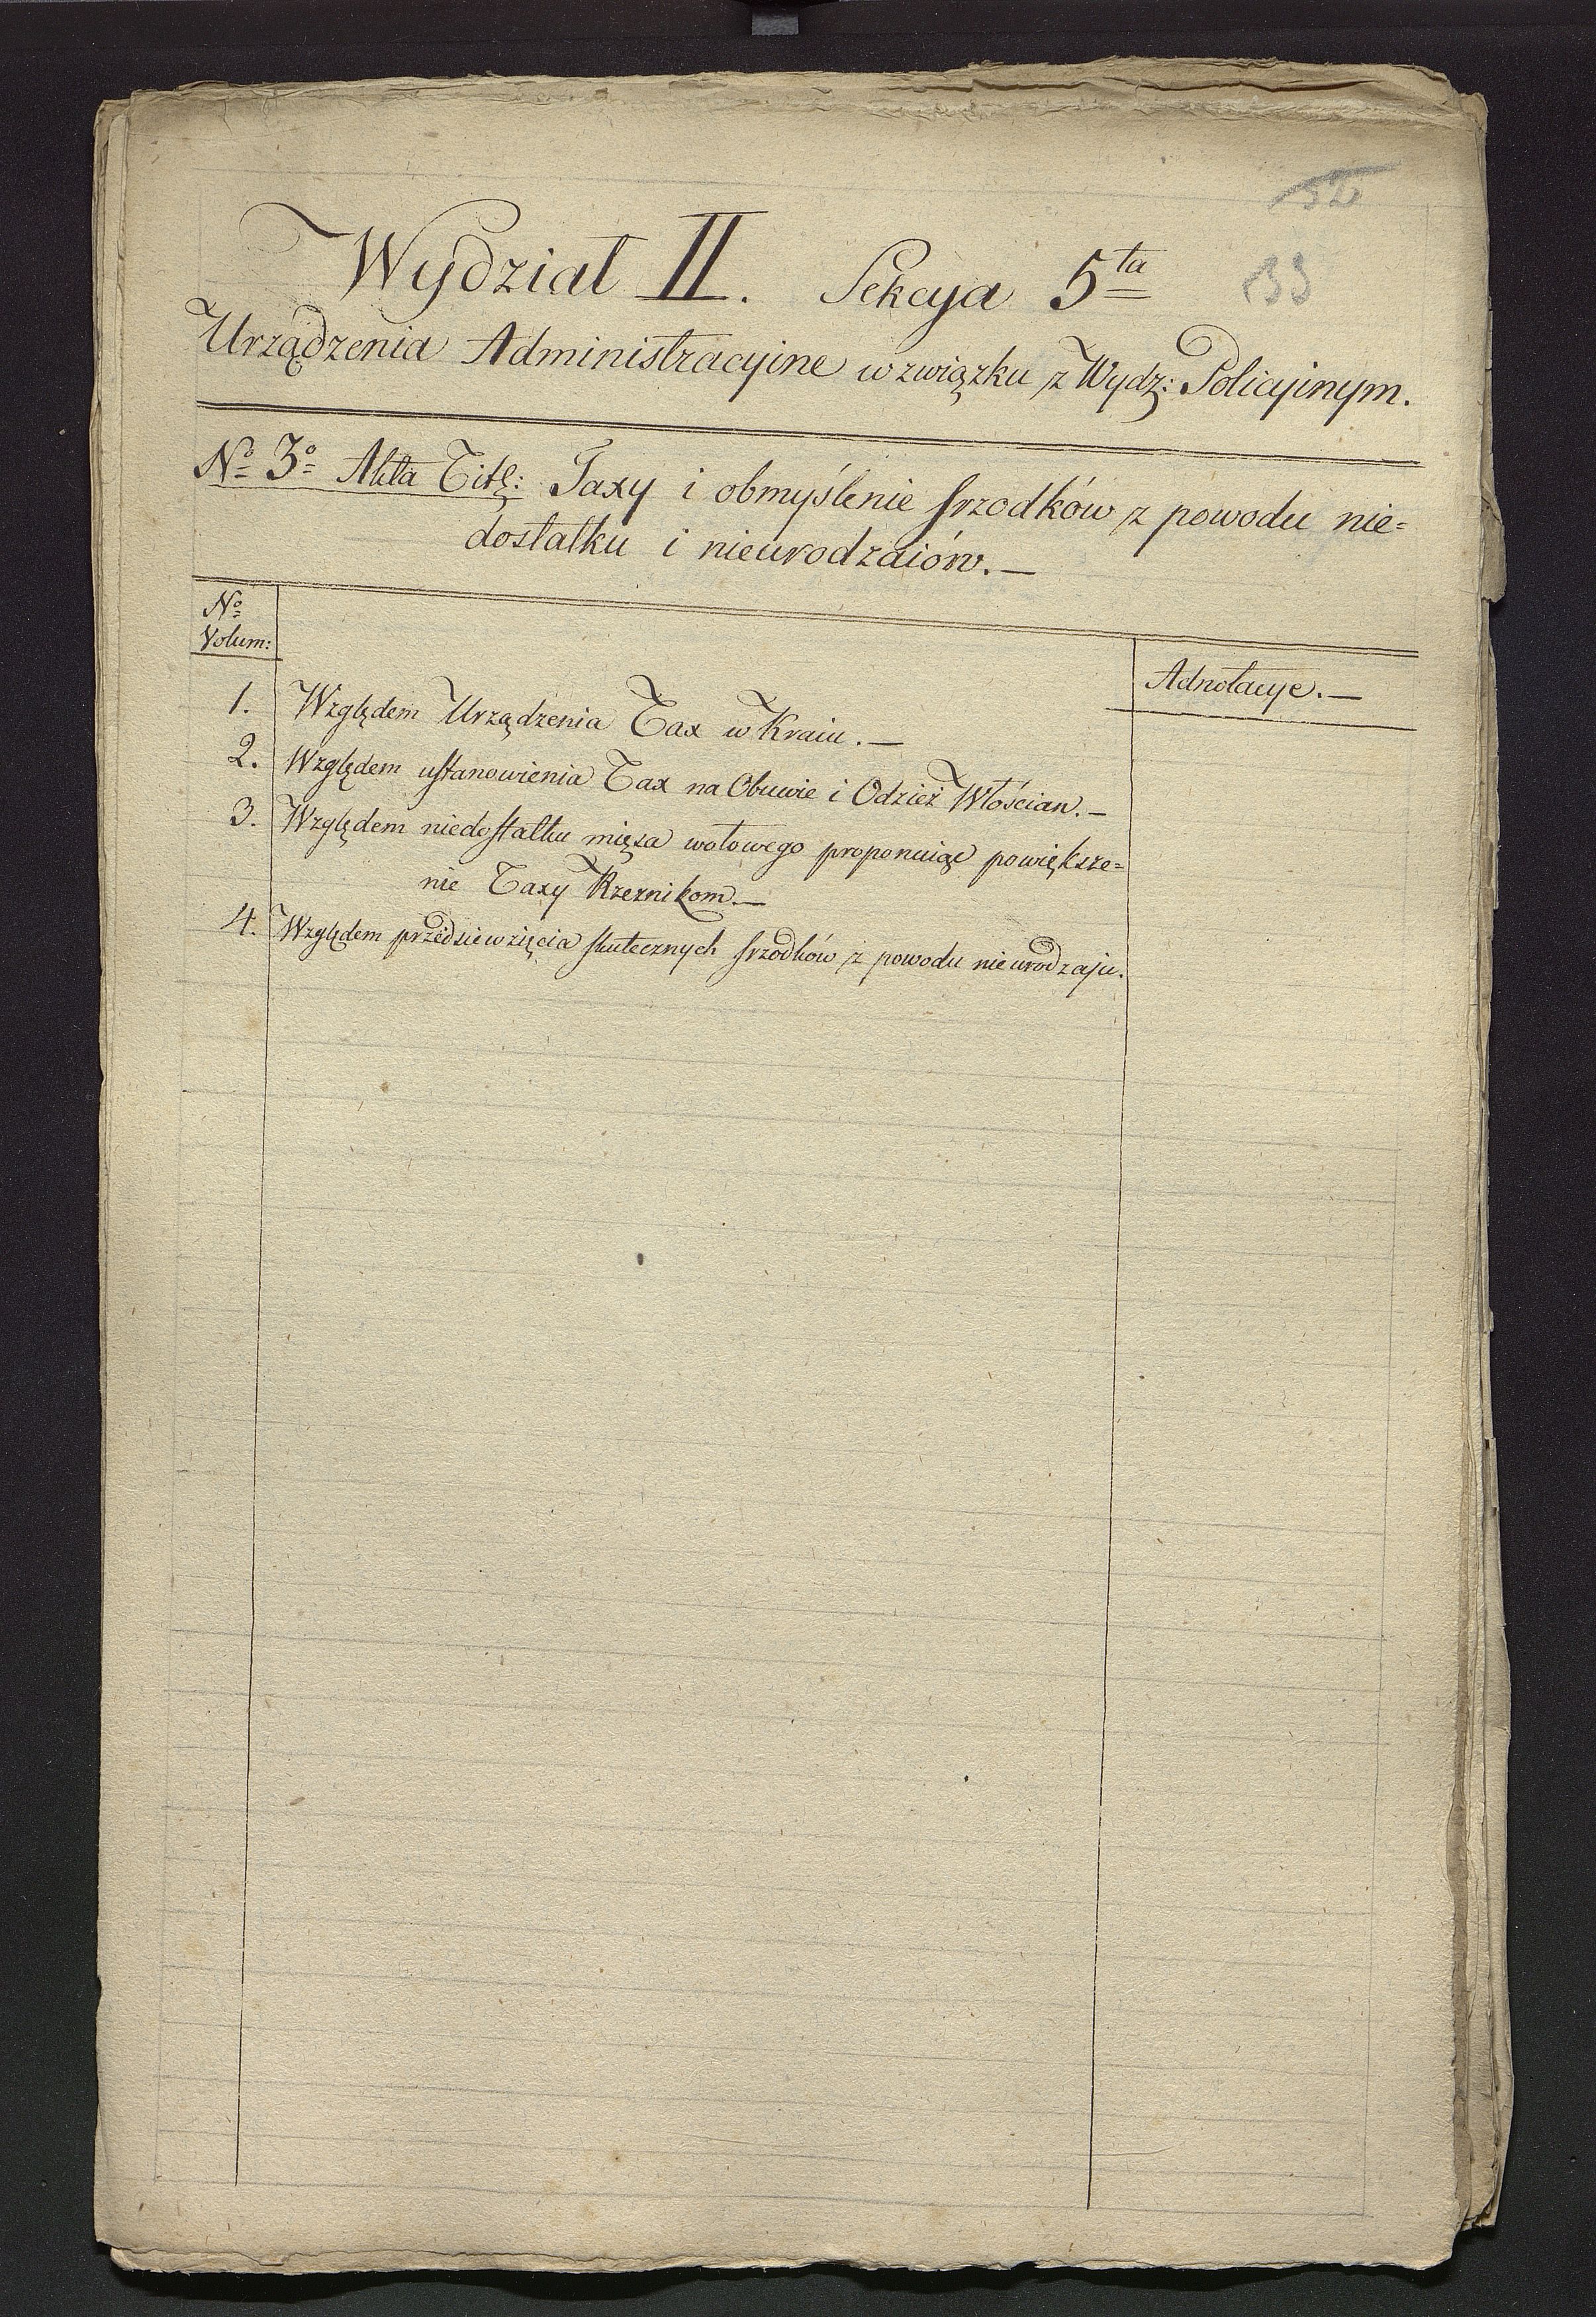 Wydział II. Sekcya 5ta
133
Urządzenia Administracyine w związku z Wydz: Policyinym.
No 3o Akta Tit: Taxy i obmyślenie srzodków z powodu nie=
dostatku i nieurodzaiów.—
No
Volum:
Adnotacye.—
1. Względem Urządzenia Tax w Kraiu.—
2. Względem ustanowienia Tax na Obuwie i Odzież Włościan.—
3. Względem niedostatku mięsa wołowego proponuiąc powiększe=
nie Taxy Rzeznikom.—
4. Względem przedsiewzięcia skutecznych srzodków z powodu nieurodzaju.